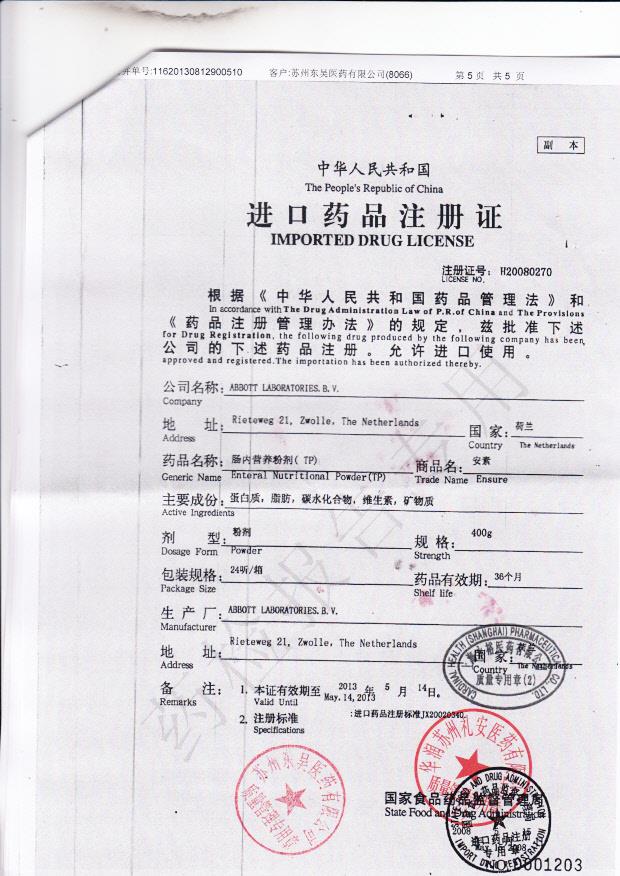 并单号:11620130812900510 客户:苏州东吴医药有限公司(8066) 第 5 页 共 5 页
副 本
中华人民共和国
The People's Republic of China
进口药品注册证
IMPORTED DRUG LICENSE
注册证号: H20080270
LICENSE NO.
根据《中华人民共和国药品管理法》和
In accordance with The Drug Administration Law of P.R.of China and The Provisions
《药品注册管理办法》的规定，兹批准下述
for Drug Registration, the following drug produced by the following company has been
公司的下述药品注册。允许进口使用。
approved and registered.The importation has been authorized thereby.
公司名称: ABBOTT LABORATORIES.B.V.
Company
地 址: Rieteweg 21, Zwolle, The Netherlands 国家: 荷兰
Address Country The Netherlands
药品名称: 肠内营养粉剂( TP) 商品名: 安素
Generic Name Enteral Nutritional Powder(TP) Trade Name Ensure
主要成份: 蛋白质, 脂肪, 碳水化合物, 维生素, 矿物质
Active Ingredients
剂 型: 粉剂 规格: 400g
Dosage Form Powder Strength
包装规格: 24听/箱 药品有效期: 36个月
Package Size Shelf life
生产厂: ABBOTT LABORATORIES.B.V.
Manufacturer
地 址: Rieteweg 21, Zwolle, The Netherlands 国家:
Address Country The Netherlands
备 注: 1. 本证有效期至 2013 年 5 月 14日。
Remarks Valid Until May.14,2013
2. 注册标准 :进口药品注册标准JX20020340.
Specifications
CARDINAL HEALTH (SHANGHAI) PHARMACEUTICAL CO., LTD.
质量专用章(2)
苏州东吴医药有限公司
质量管理专用章
华润苏州礼安医药有限公司
国家食品药品监督管理局
State Food and Drug Administration
2008
进口药品注册
专用章
IMPORT DRUG REGISTRATION
NO.0001203
药检报告专用